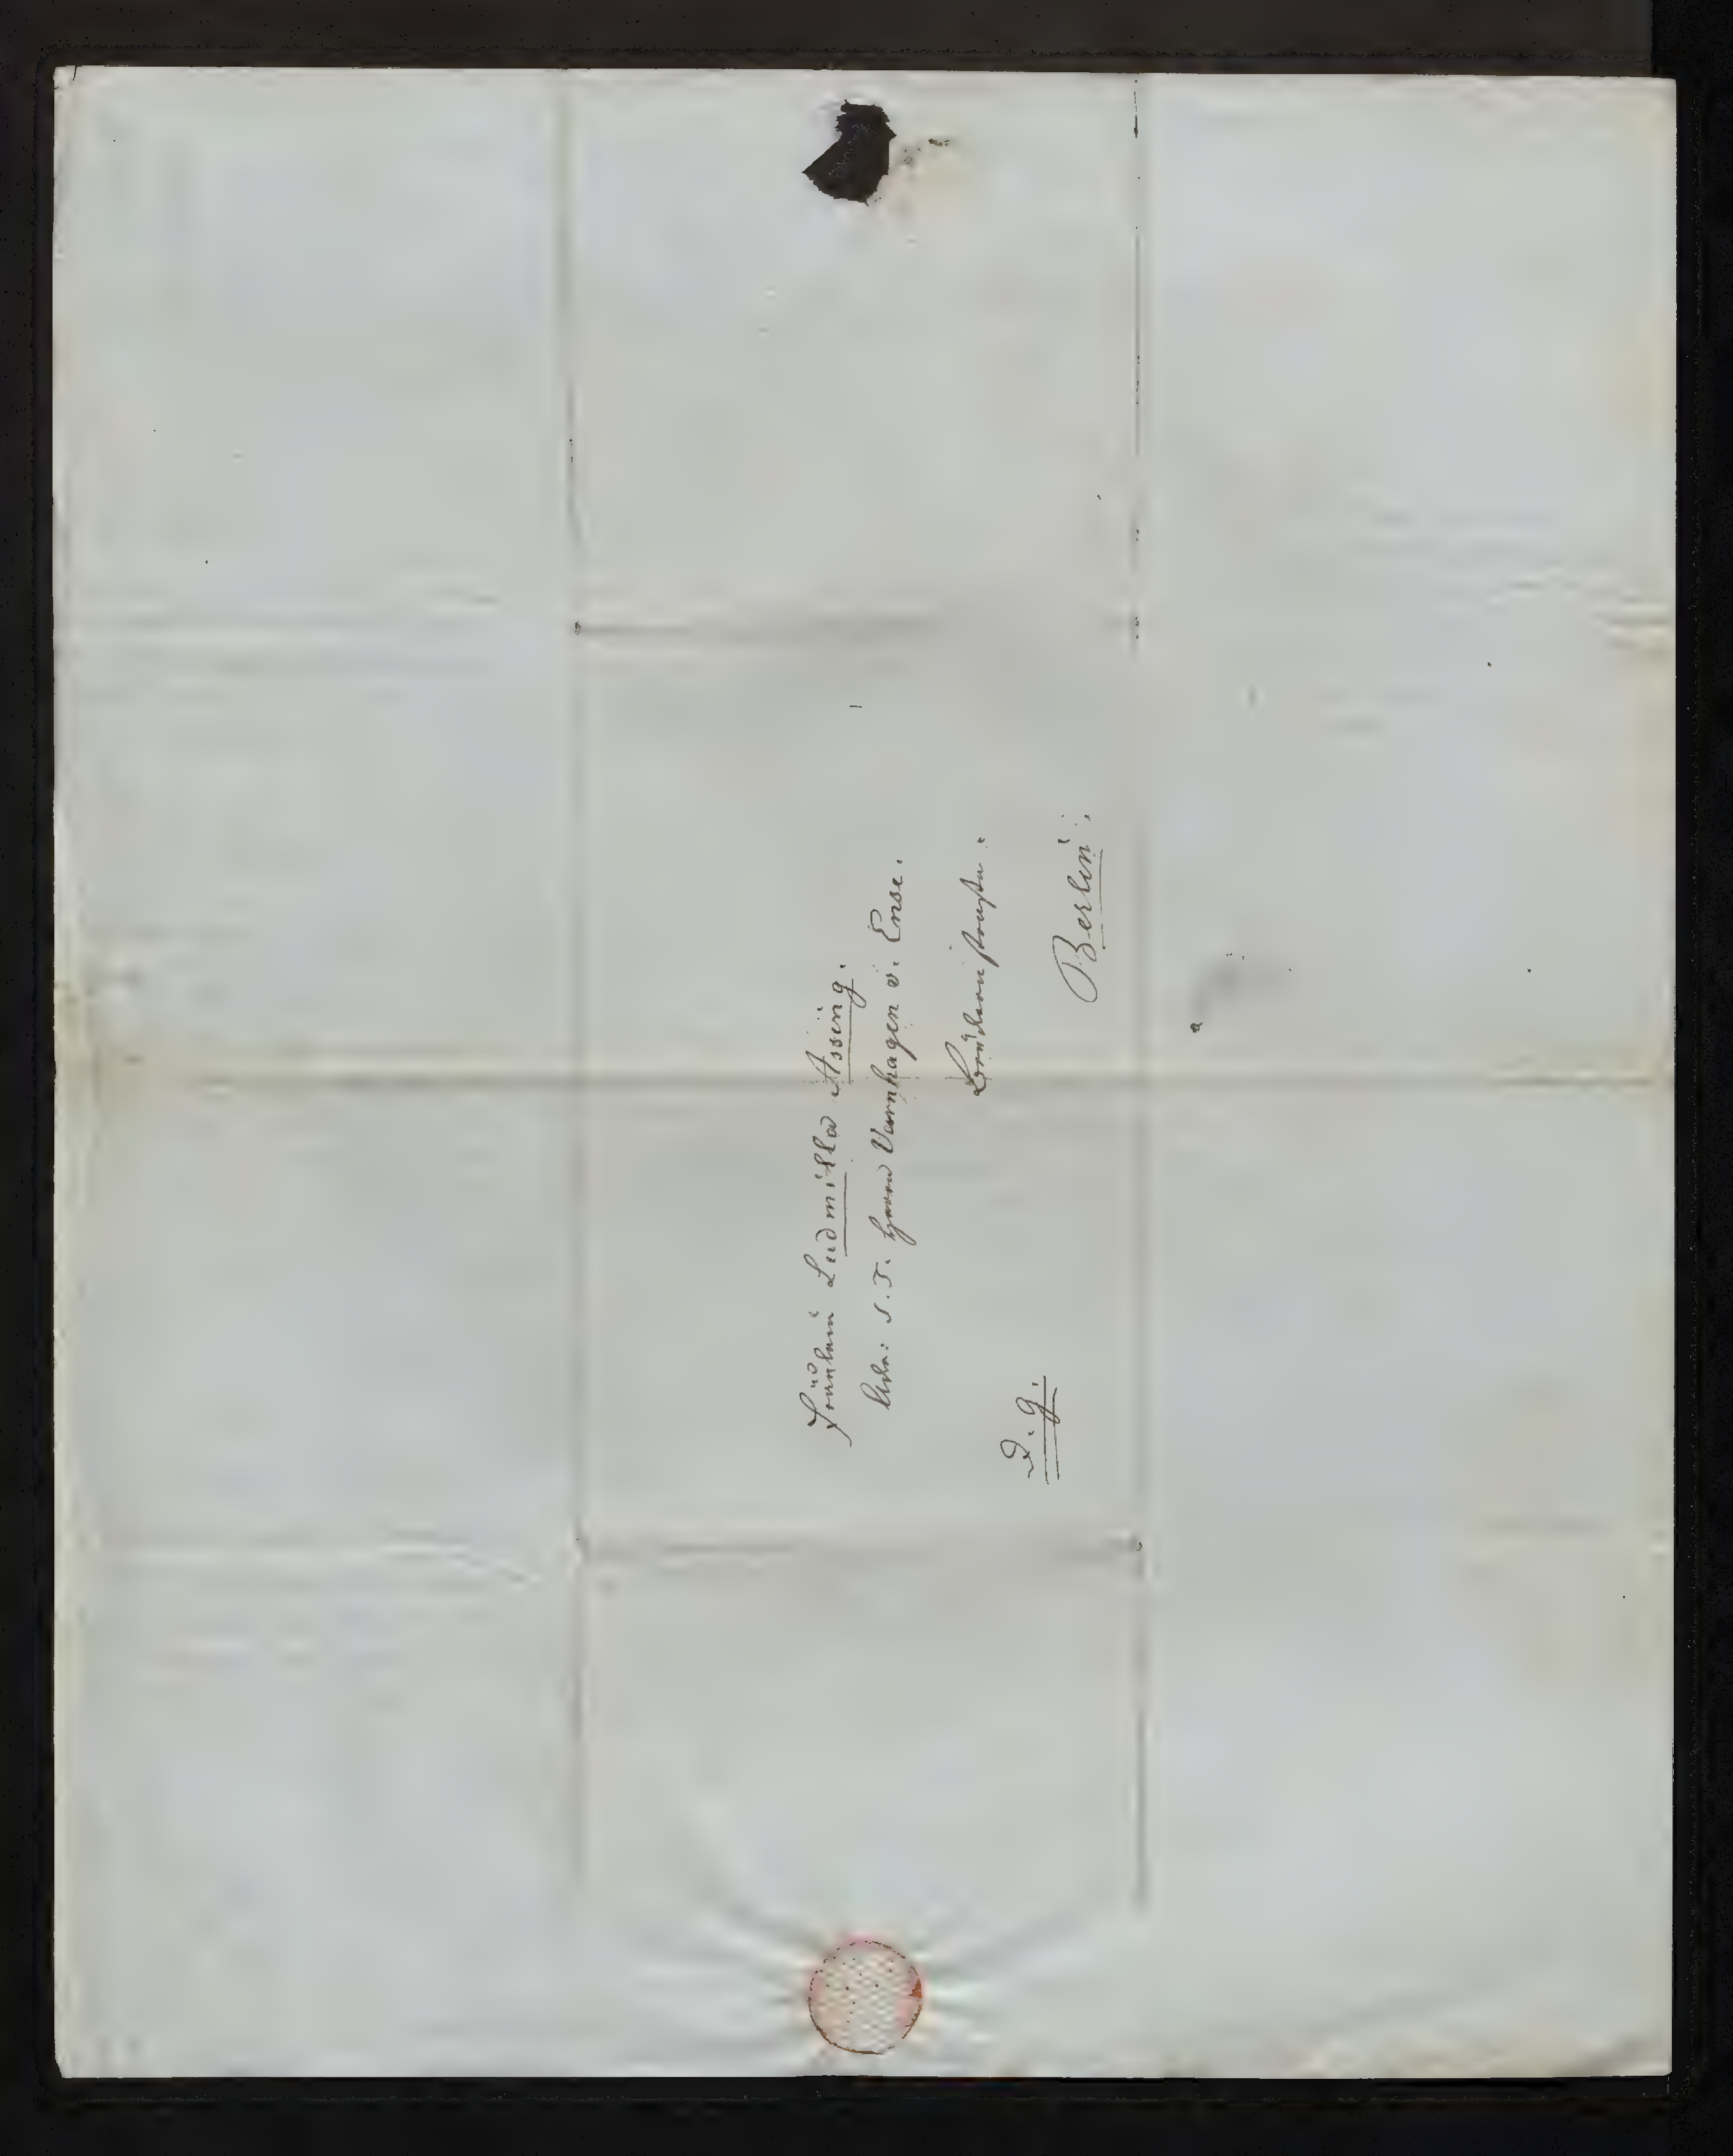 Fräulein Ludmilla Assing.
Adr: S. T. Herrn Varnhagen v. Ense.
Brüderstraße.
Berlin.
D. G.